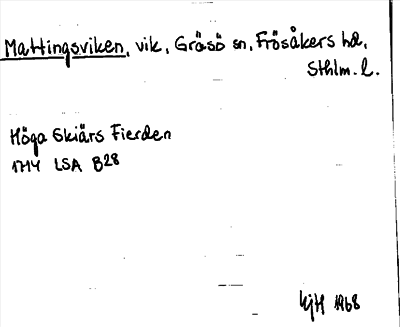 Mattingsviken, vik, Gräsö sn, Frösåkers hd,
Sthlm. l.
Höga Skiärs Fierden
1714 LSA B28
1968